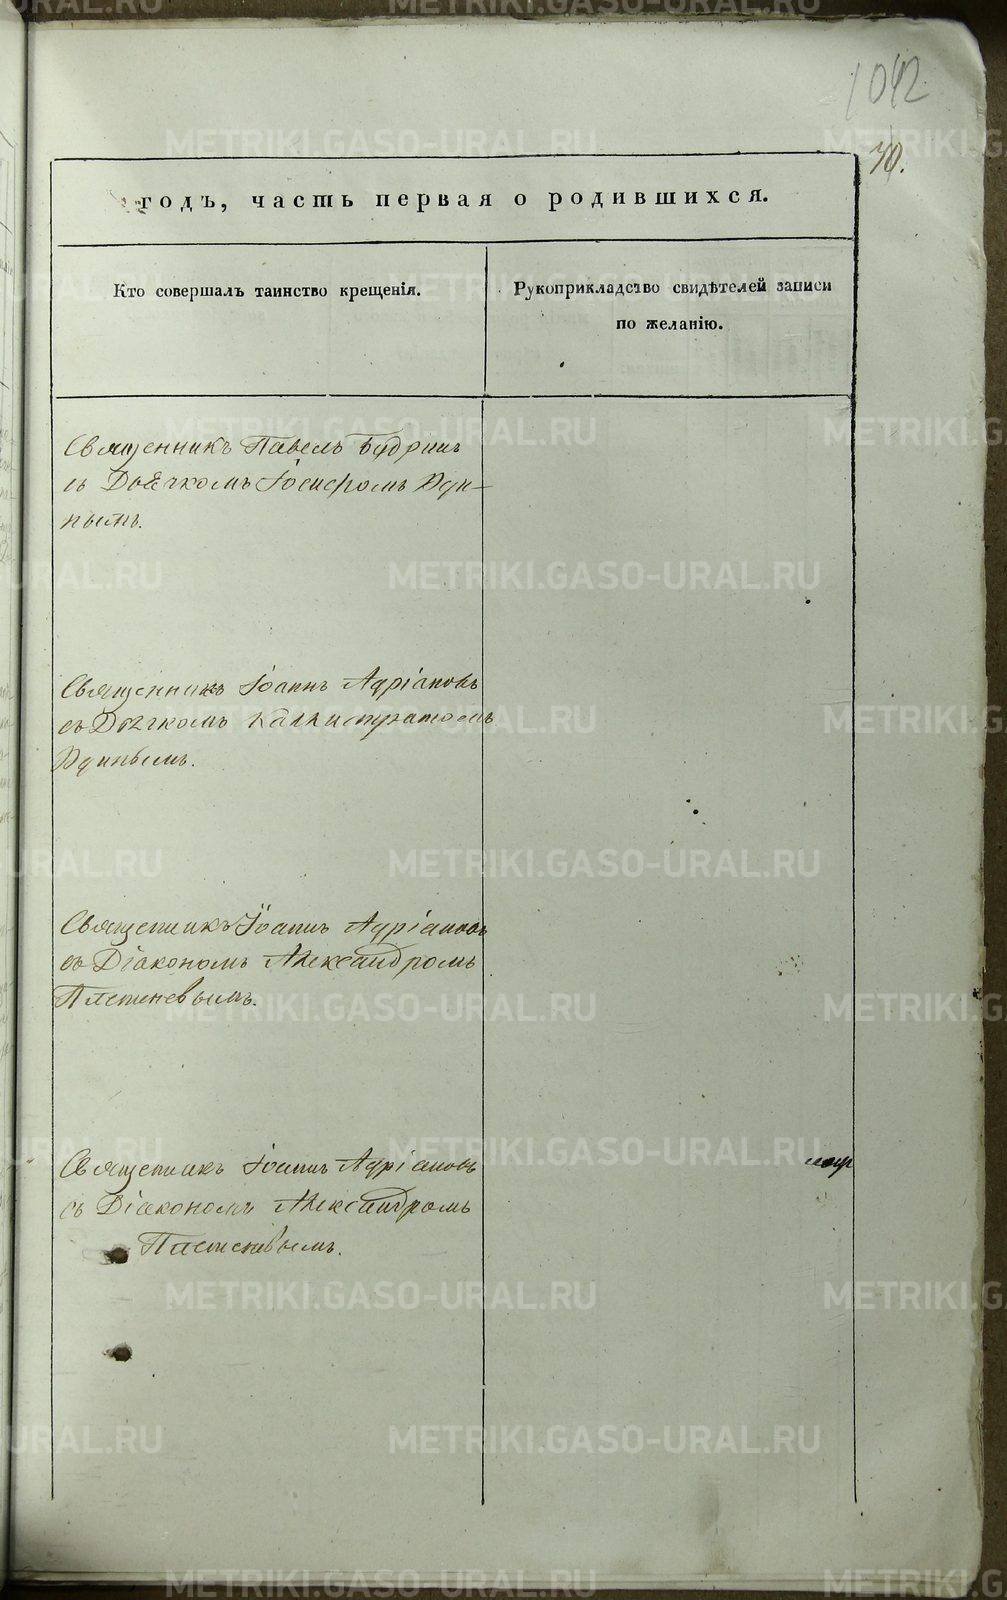 1042
70.
годъ, часть первая о родившихся.
Кто совершалъ таинство крещенія.
Рукоприкладство свидѣтелей записи
по желанію.
Священникъ Павелъ Будринъ
съ Дьячкомъ Іосифомъ Уди-
нымъ.
Священникъ Іоаннъ Адріановъ
съ Дьячкомъ Каллистратомъ
Удинымъ.
Священникъ Іоаннъ Адріановъ
съ Діакономъ Александромъ
Плетеневымъ.
Священникъ Іоаннъ Адріановъ
съ Діакономъ Александромъ
Плетеневымъ.
METRIKI.GASO-URAL.RU